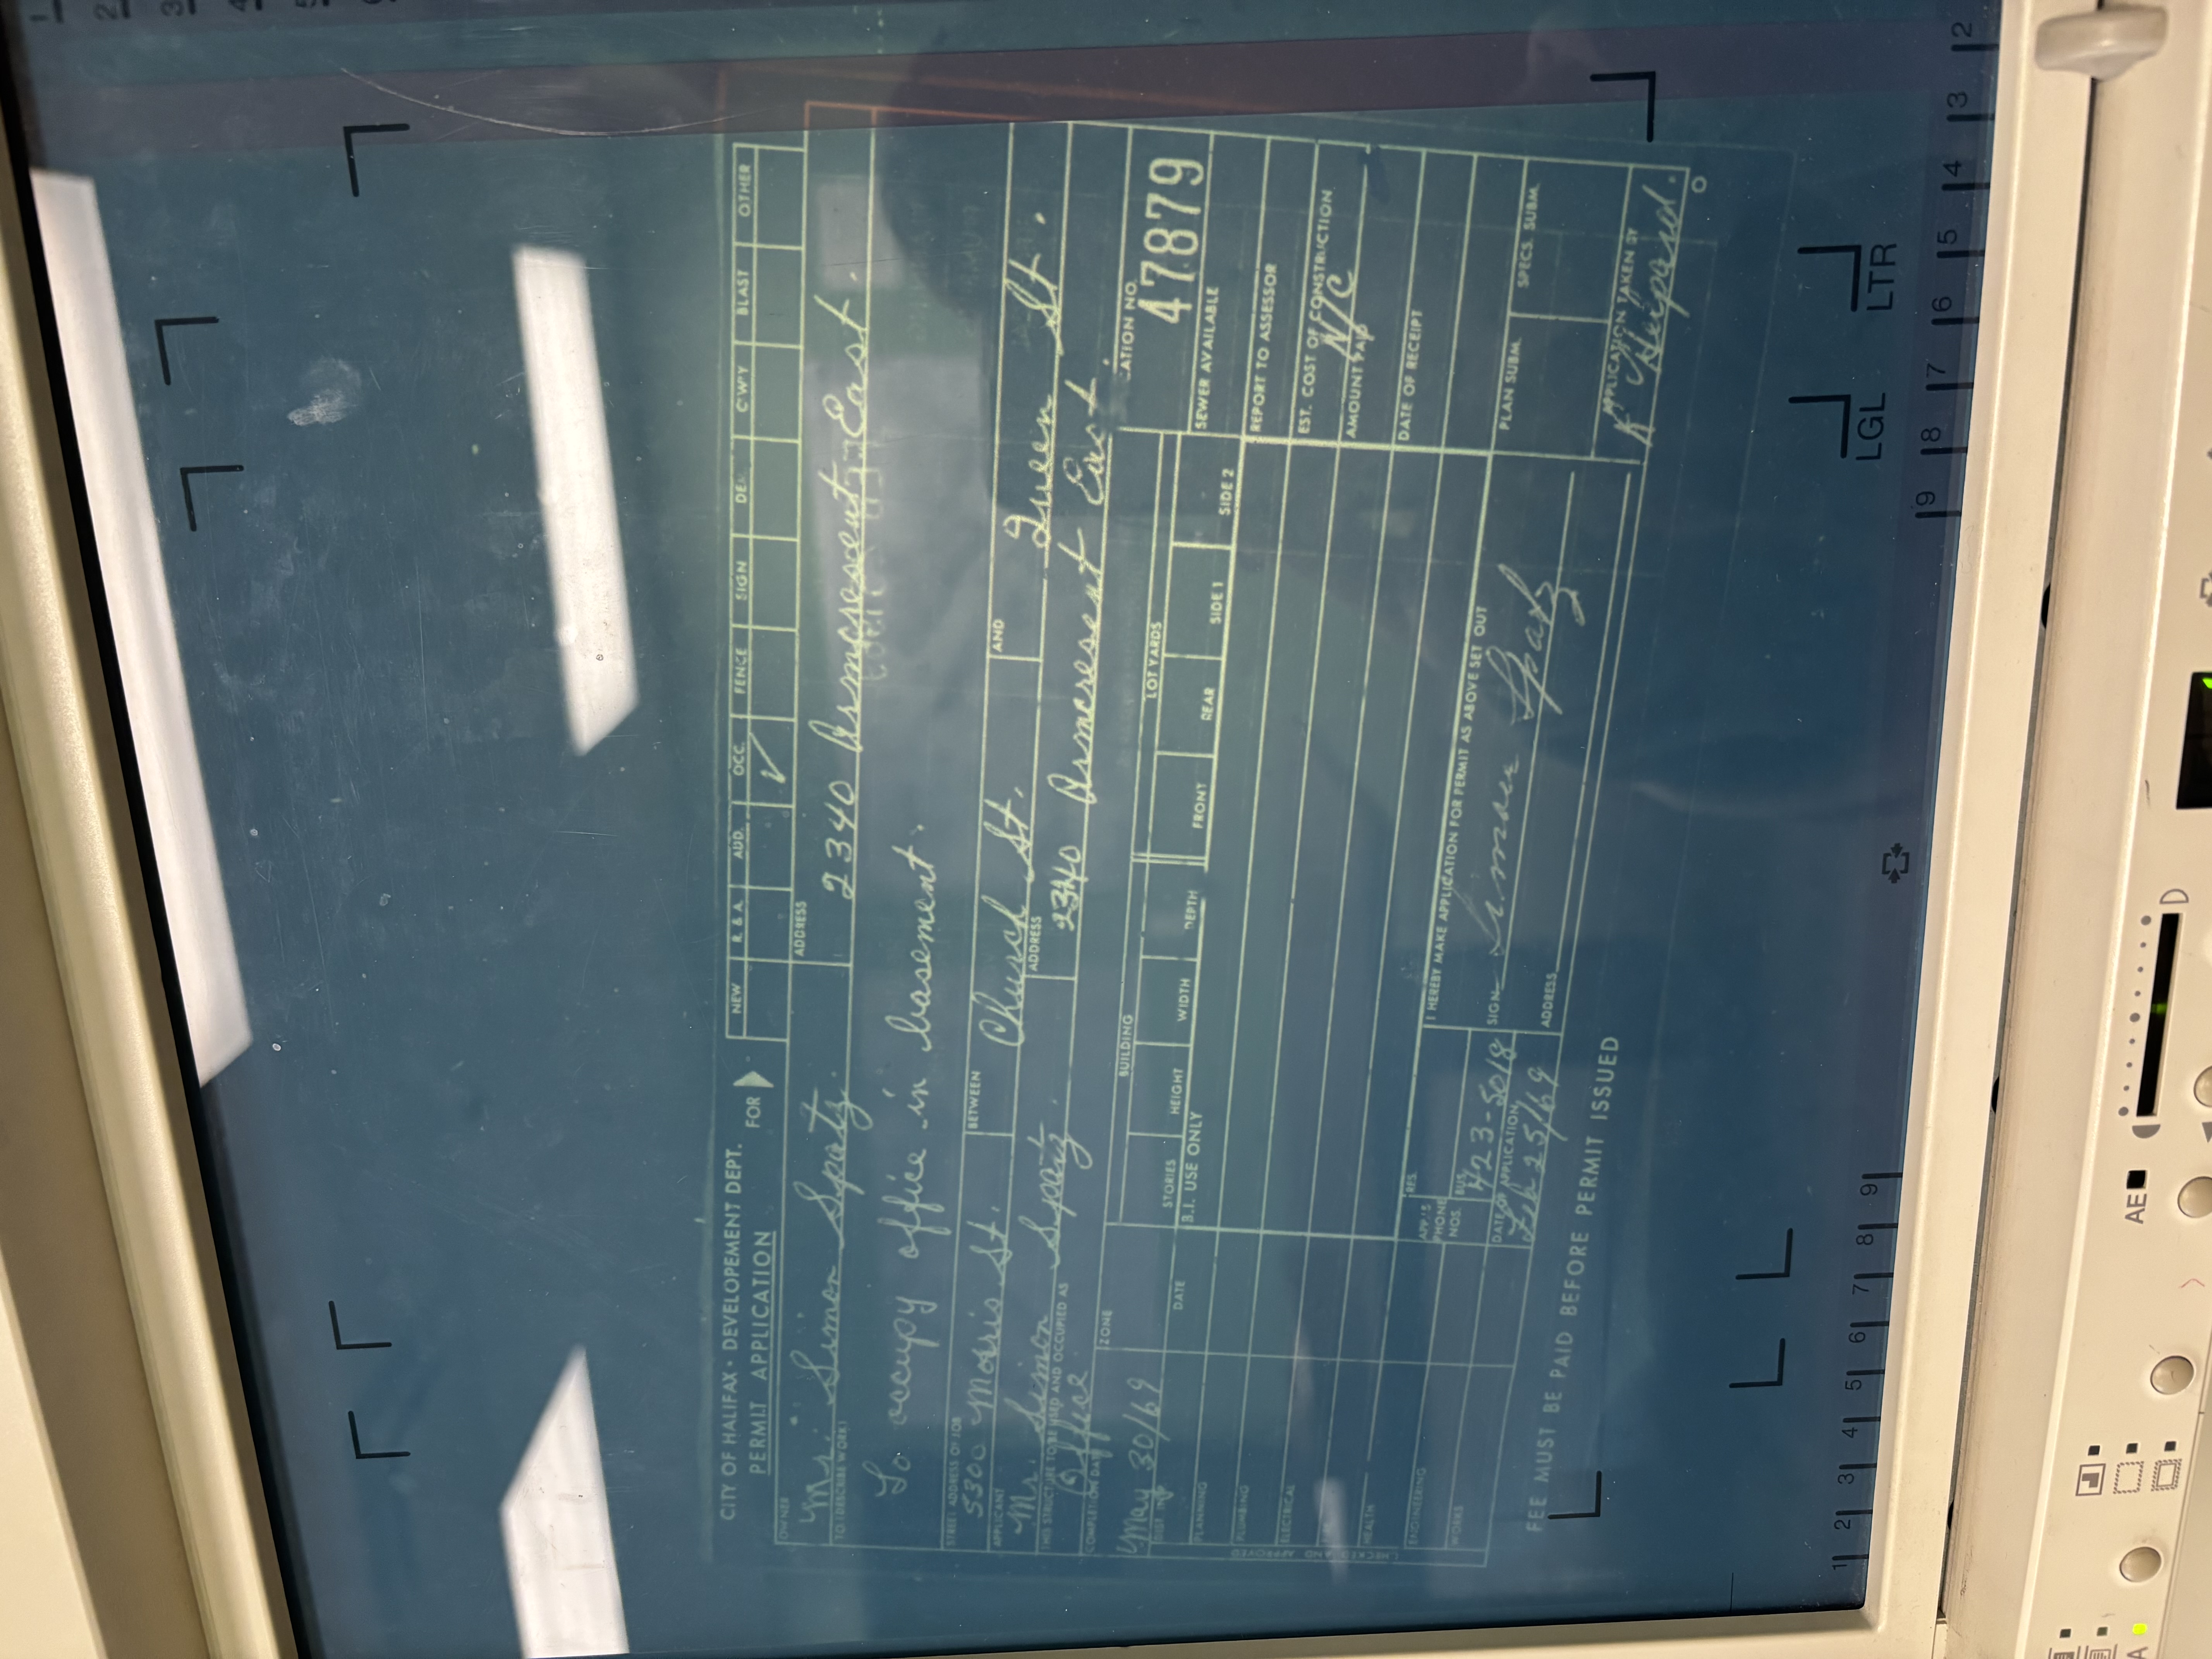 CITY OF HALIFAX • DEVELOPEMENT DEPT.
PERMIT APPLICATION
FOR
NEW R. & A. ADD. OCC. FENCE SIGN DE C'W'Y BLAST OTHER
✓
OWNER
Mr. Simon Spatz.
ADDRESS
2340 Armcrescent East.
TO (DESCRIBE WORK)
To occupy office in basement.
STREET ADDRESS OF JOB
5300 Morris St.
BETWEEN
Church St.
AND
Queen St.
APPLICANT
Mr. Simon Spatz.
ADDRESS
2340 Armcresent East.
THIS STRUCTURE TO BE USED AND OCCUPIED AS
Office
COMPLETION DATE
May 30/69
ZONE
BUILDING
STORIES HEIGHT WIDTH DEPTH
LOT YARDS
FRONT REAR SIDE 1 SIDE 2
CATION NO.
47879
DATE
B.I. USE ONLY
SEWER AVAILABLE
CHECKED AND APPROVED
PLANNING
PLUMBING
ELECTRICAL
HEALTH
ENGINEERING
WORKS
REPORT TO ASSESSOR
EST. COST OF CONSTRUCTION
N/C
AMOUNT PAID
DATE OF RECEIPT
APP.'S PHONE NOS.
RES.
BUS.
423-5018
DATE OF APPLICATION
Feb 25/69
I HEREBY MAKE APPLICATION FOR PERMIT AS ABOVE SET OUT
SIGN Simon Spatz
ADDRESS
PLAN SUBM. SPECS. SUBM.
APPLICATION TAKEN BY
FEE MUST BE PAID BEFORE PERMIT ISSUED
LGL LTR
1 2 3 4 5 6 7 8 9
9 8 7 6 5 4 3 2
AE
A